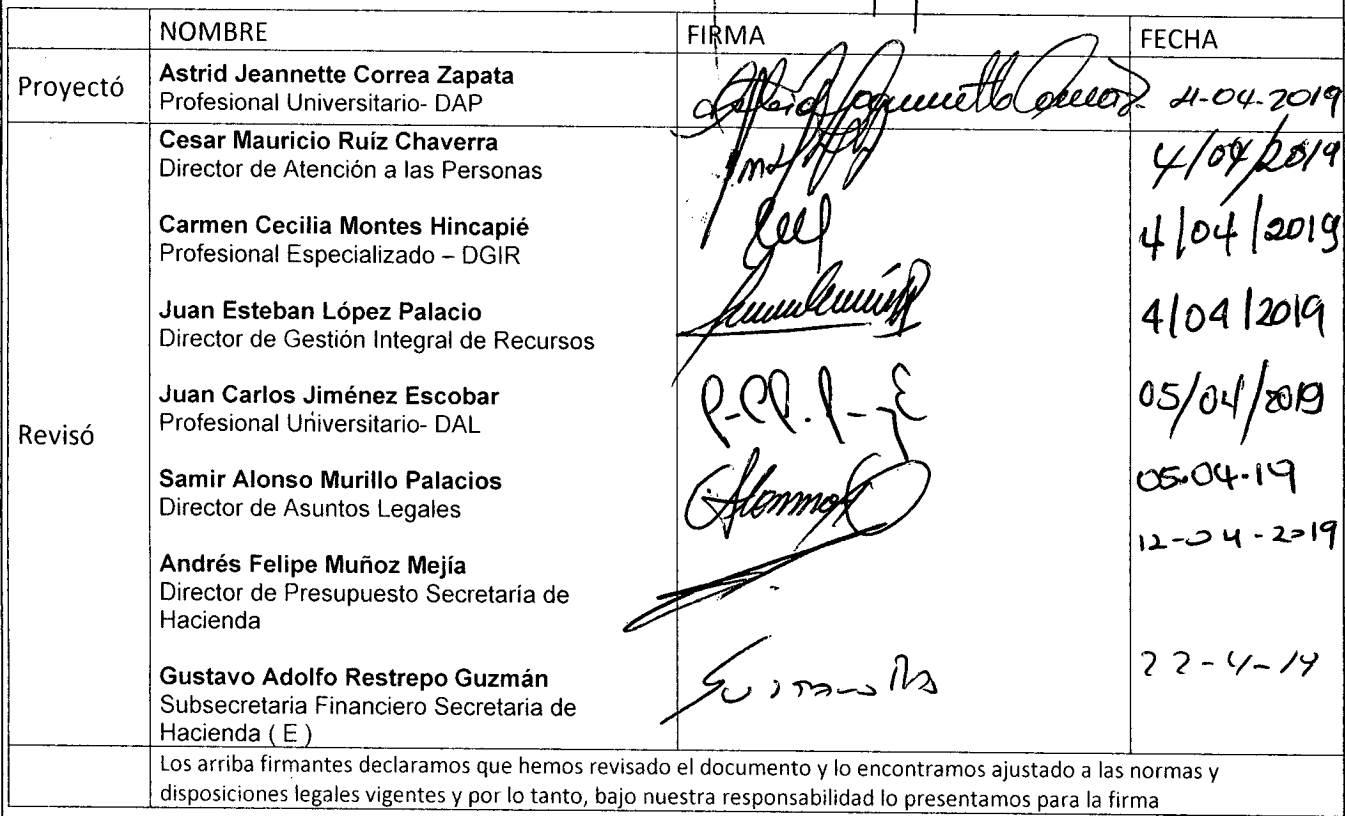 NOMBRE FIRMA FECHA
Proyectó
Astrid Jeannette Correa Zapata
Profesional Universitario- DAP
4-04-2019
Revisó
Cesar Mauricio Ruíz Chaverra
Director de Atención a las Personas
4/04/2019
Carmen Cecilia Montes Hincapié
Profesional Especializado – DGIR
4/04/2019
Juan Esteban López Palacio
Director de Gestión Integral de Recursos
4/04/2019
Juan Carlos Jiménez Escobar
Profesional Universitario- DAL
05/04/2019
Samir Alonso Murillo Palacios
Director de Asuntos Legales
05-04-19
Andrés Felipe Muñoz Mejía
Director de Presupuesto Secretaría de
Hacienda
12-04-2019
Gustavo Adolfo Restrepo Guzmán
Subsecretaria Financiero Secretaria de
Hacienda ( E )
22-4-19
Los arriba firmantes declaramos que hemos revisado el documento y lo encontramos ajustado a las normas y
disposiciones legales vigentes y por lo tanto, bajo nuestra responsabilidad lo presentamos para la firma